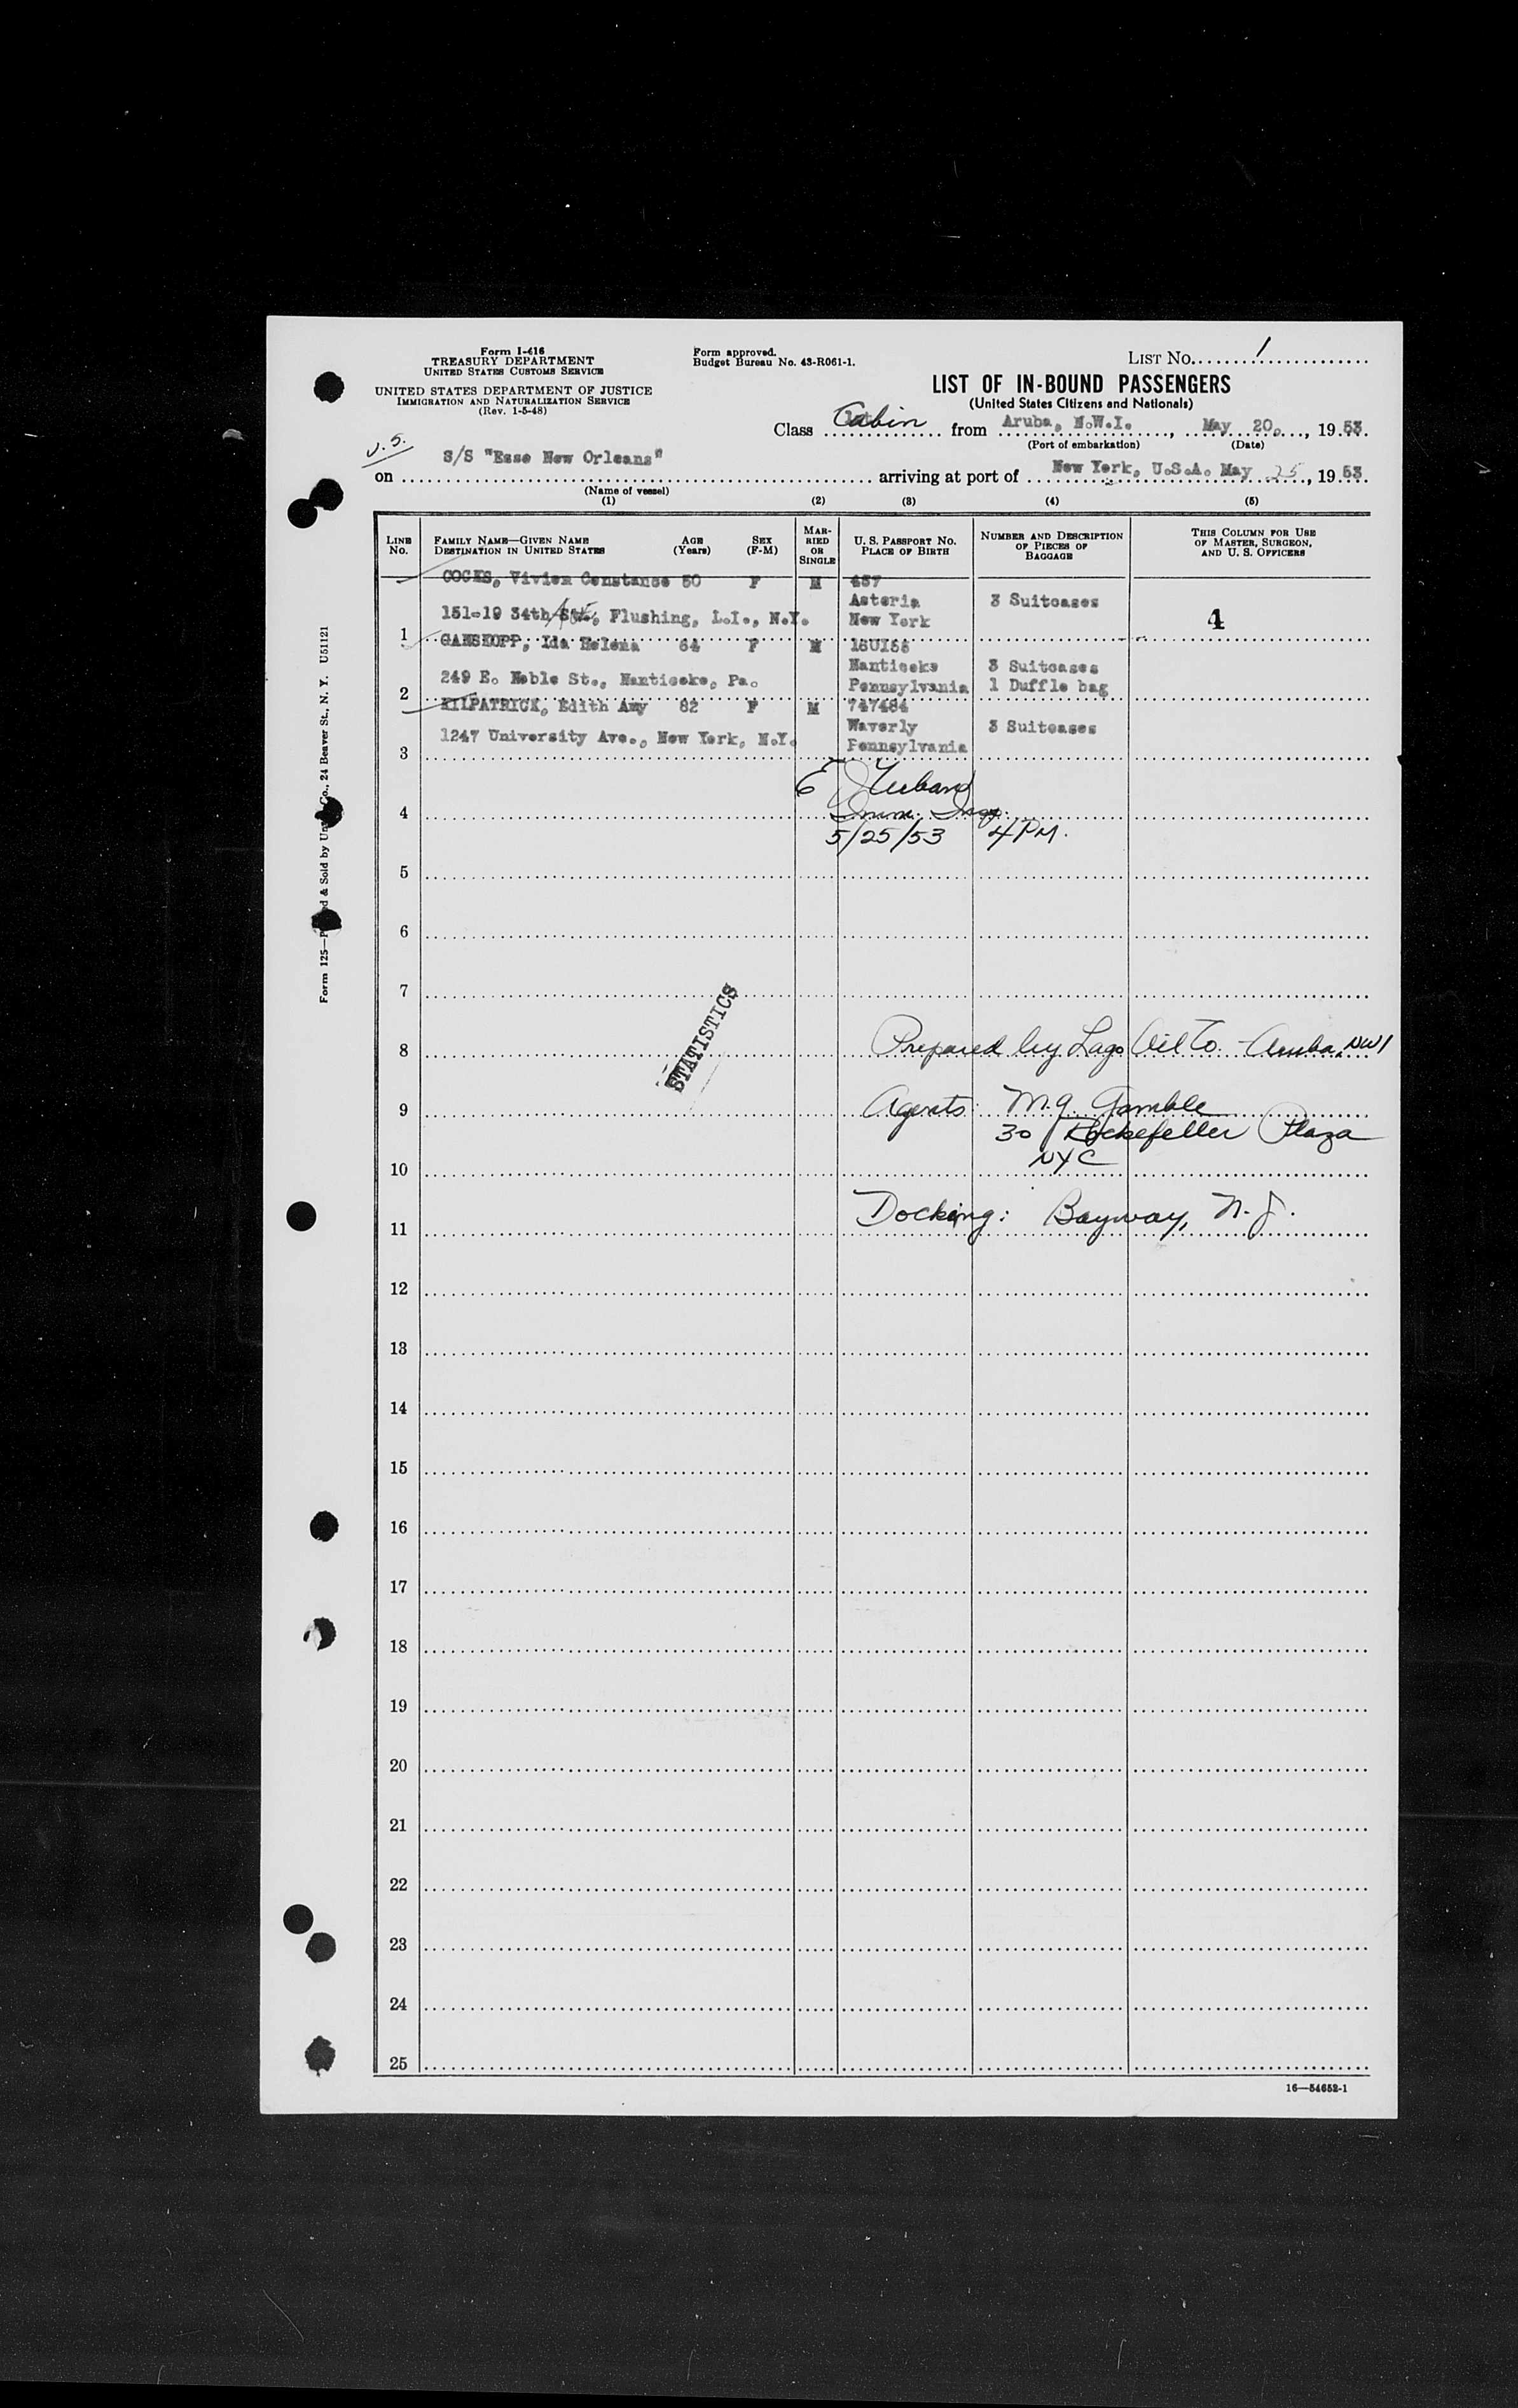 Form I-416
TREASURY DEPARTMENT
UNITED STATES CUSTOMS SERVICE
UNITED STATES DEPARTMENT OF JUSTICE
IMMIGRATION AND NATURALIZATION SERVICE
(Rev. 1-5-48)
Form approved.
Budget Bureau No. 43-R061-1.
LIST No. 1
LIST OF IN-BOUND PASSENGERS
(United States Citizens and Nationals)
Class Cabin from Aruba, N.W.I., May 20, 1953.
(Port of embarkation) (Date)
U.S.
on S/S "Esso New Orleans" arriving at port of New York, U.S.A. May 25, 1953.
(Name of vessel)
(1) (2) (3) (4) (5)
LINE No. FAMILY NAME—GIVEN NAME DESTINATION IN UNITED STATES AGE (Years) SEX (F-M) MARRIED OR SINGLE U. S. PASSPORT No. PLACE OF BIRTH NUMBER AND DESCRIPTION OF PIECES OF BAGGAGE THIS COLUMN FOR USE OF MASTER, SURGEON, AND U. S. OFFICERS
COCKS, Vivien Constance 50 F M 457
Astoria 3 Suitcases
1 151-19 34th Ave, Flushing, L.I., N.Y. New York 4
GANSKOPP, Ida Helena 64 F M
Nanticoke 3 Suitcases
2 249 E. Noble St., Nanticoke, Pa. Pennsylvania 1 Duffle bag
KILPATRICK, Edith Amy 82 F M 747484
Waverly 3 Suitcases
3 1247 University Ave., New York, N.Y. Pennsylvania
E
4 Imm. Insp.
5/25/53 4 PM.
5
6
7
STATISTICS
8 Prepared by Lago Oil Co. - Aruba, NWI
9 Agents: M.G. Gamble
30 Rockefeller Plaza
10 NYC
11 Docking: Bayway, N.J.
12
13
14
15
16
17
18
19
20
21
22
23
24
25
16—54652-1
Form 125—P d & Sold by Un Co., 24 Beaver St., N. Y. U51121